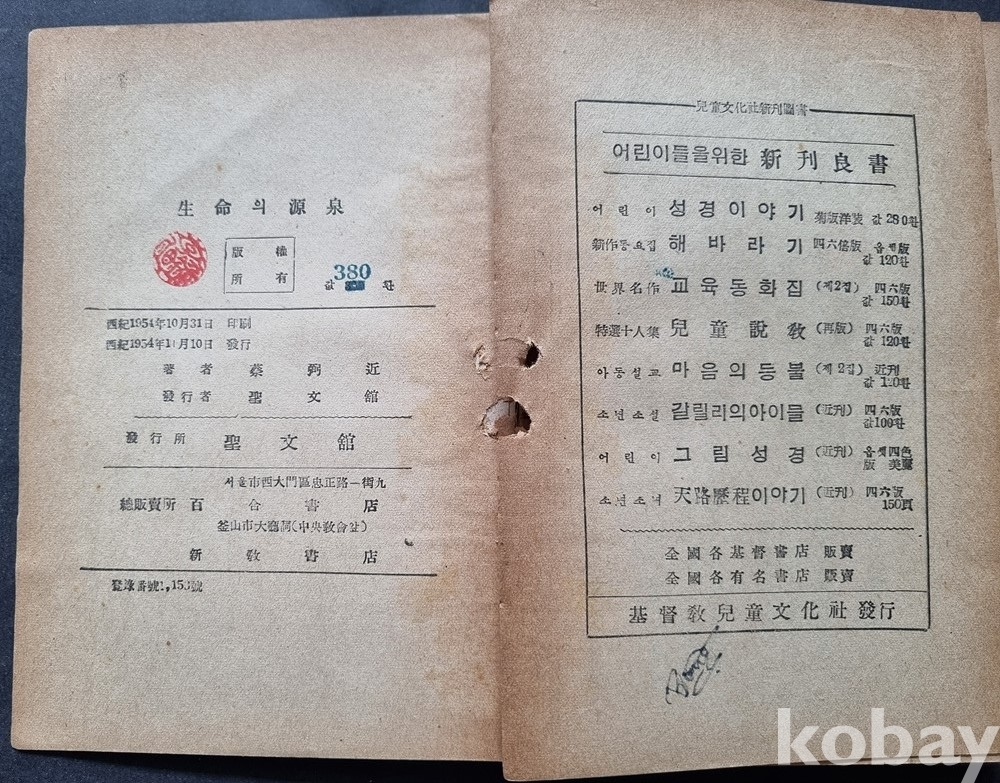 生命의源泉
版權
所有
값 380 환
西紀1954年10月31日 印刷
西紀1954年11月10日 發行
著者 蔡弼近
發行者 聖文館
發行所 聖文館
서울市西大門區忠正路一街九
總販賣所 百合書店
釜山市大廳洞(中央敎會앞)
新敎書店
登錄番號1,153號
兒童文化社新刊圖書
어린이들을위한 新刊良書
어린이 성경이야기 菊版洋裝 값 280환
新作동요집 해바라기 四六倍版 옵셑版
값 120환
世界名作 교육동화집 (제2집) 四六版
값 150환
特選十人集 兒童說敎 (再版) 四六版
값 120환
아동설교 마음의등불 (제2집) 近刊
값
소년소설 갈릴리의아이들 (近刊) 四六版
값100환
어린이 그림성경 (近刊) 옵셋四色
版 美麗
소년소녀 天路歷程이야기 (近刊) 四六版
150頁
全國各基督書店 販賣
全國各有名書店 販賣
基督敎兒童文化社發行
kobay